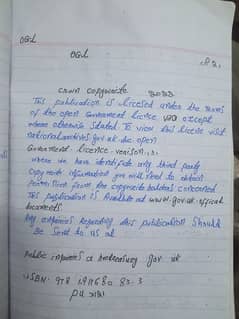 OGL
OGL
crown copywrite
This publication is licesed under the terms
of the open Government licence except
where otherwise stated To view this license visit
nationalarchives gov uk doc open
Government licence
where we have identifide any third party
copy write information you will need to obtain
permission from the copywrite holders concerned
This publication is available at www.gov.uk official
documents
Any enquiries regarding this publication Should
Be sent to us at
public enquiries a gov. uk
ISBN. 978